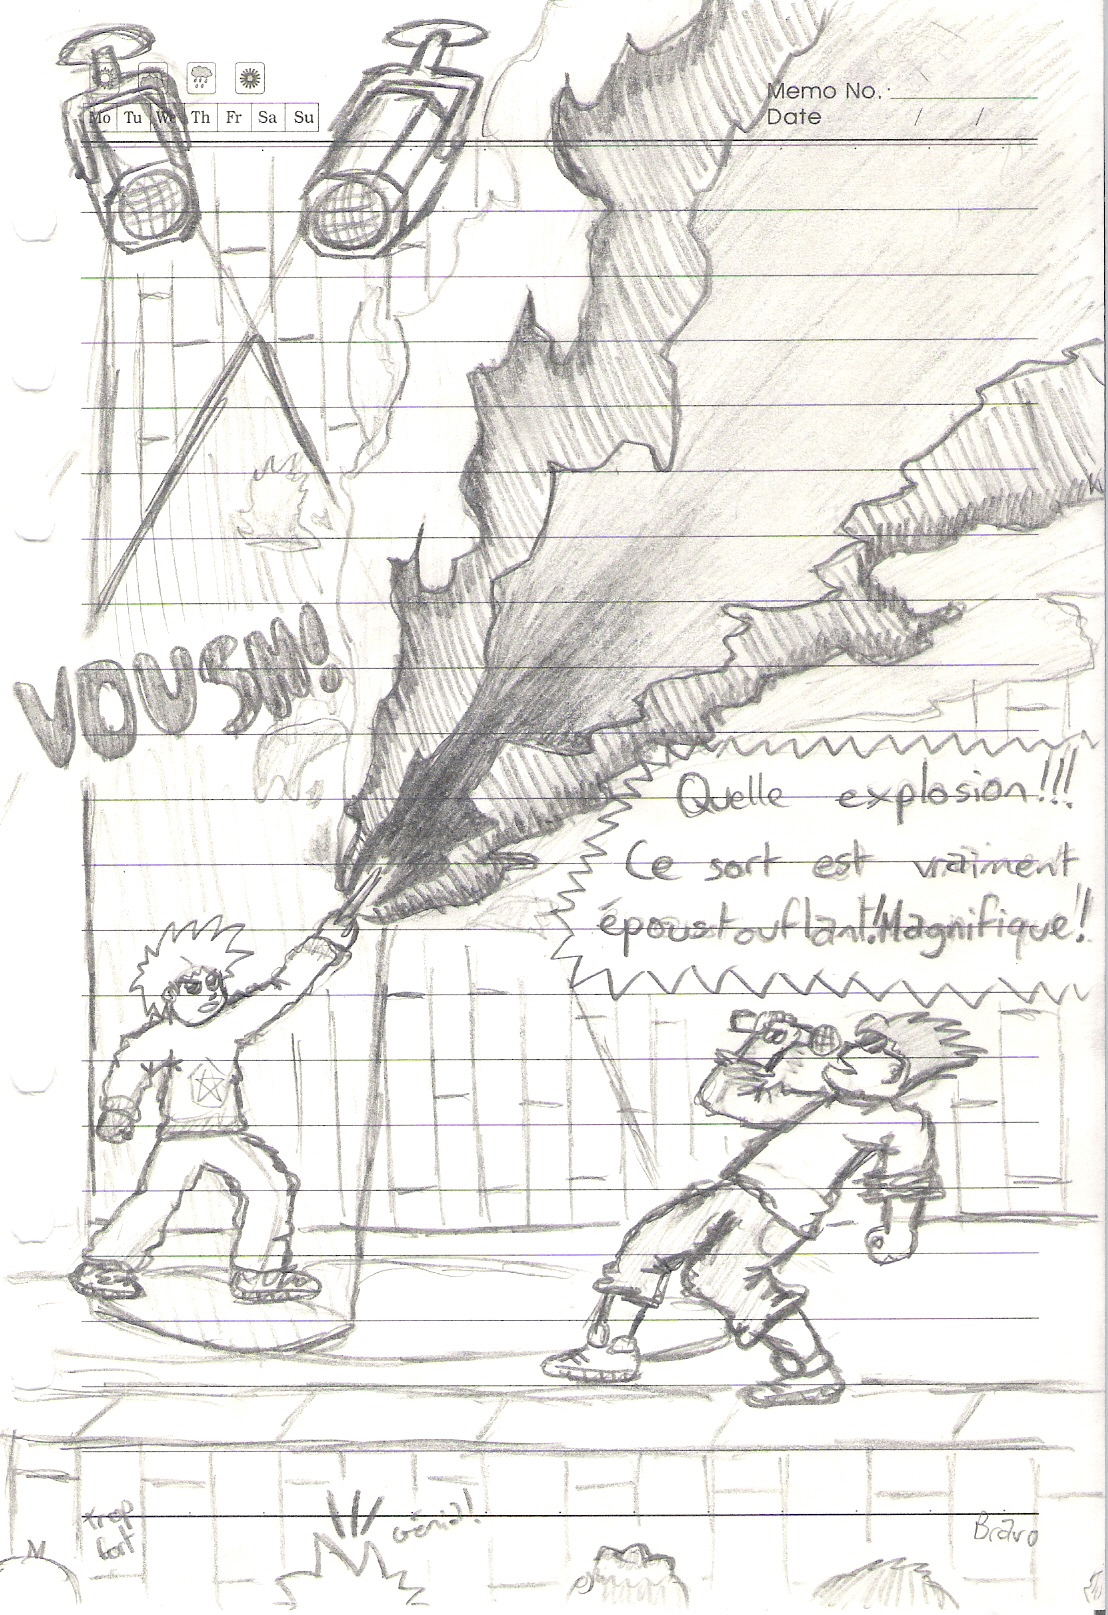 Memo No.
Mo Tu We Th Fr Sa Su
Date / /
VOUSM!
Quelle explosion!!!
Ce sort est vraiment
époustouflant! Magnifique!
trop
fort
Génial!
Bravo